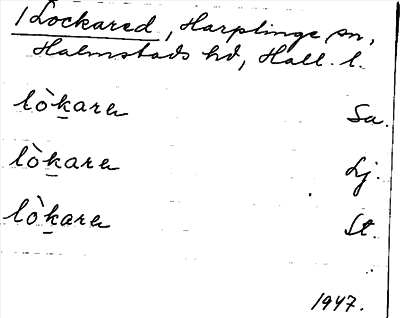 / Lockared, Harplinge sn,
Halmstads hd, Hall. l.
lò̀karɐ Sa.
lò̀karɐ Lj.
lò̀karɐ St.
1947.